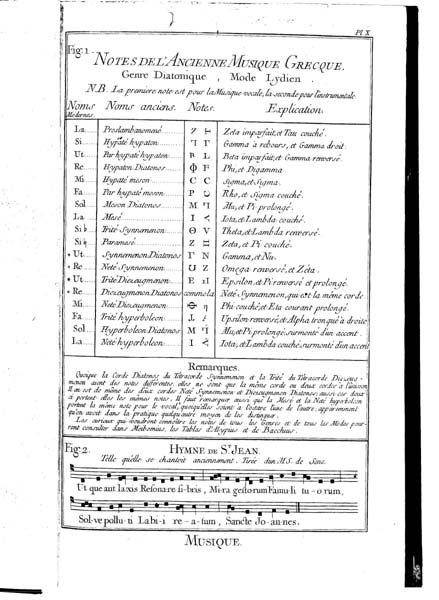 Pl. X
Fig. 1.
NOTES DE L'ANCIENNE MUSIQUE GRECQUE.
Genre Diatonique, Mode Lydien.
N.B. La premiere note est pour la Musique vocale, la seconde pour l'instrumentale.
Noms Modernes. Noms anciens. Notes. Explication.
La Proslambanomené Zeta imparfait, et Tau couché.
Si Hypaté hypaton Γ Gamma à rebours, et Gamma droit.
Ut Parhypaté hypaton Beta imparfait, et Gamma renversé.
Re Hypaton Diatonos Φ F Phi, et Digamma
Mi Hypaté meson C C Sigma, et Sigma.
Fa Parhypaté meson P Rho, et Sigma couché.
Sol Meson Diatonos M Mu, et Pi prolongé.
La Mesé I < Iota, et Lambda couché.
Si b Trité Synnemenon Θ V Theta, et Lambda renversé.
Si Paramesé Z Zeta, et Pi couché.
* Ut Synnemenon Diatonos Γ N Gamma, et Nu.
* Re Neté Synnemenon Ʊ Z Omega renversé, et Zeta.
* Ut Trité Diezeugmenon E Epsilon, et Pi renversé et prolongé.
* Re Diezeugmenon Diatonos comme la Neté Synnemenon, qui est la même corde
Mi Neté Diezeugmenon η Phi couché, et Eta courant prolongé.
Fa Trité hyperboleon Upsilon renversé, et Alpha tronqué à droite
Sol Hyperboleon Diatonos M Mu, et Pi prolongé, surmonté d'un accent.
La Neté hyperboleon I Iota, et Lambda couché, surmonté d'un accent
Remarques.
Quoique la Corde Diatonos du Tétracorde Synnemenon et la Trité du Tétracorde Diezeug-
menon aient des notes differentes, elles ne sont que la même corde ou deux cordes à l'unisson
Il en est de même des deux cordes Neté Synnemenon et Diezeugmenon Diatonos; aussi ces deux
ci portent elles les mêmes notes. Il faut remarquer aussi que la Mesé et la Neté hyperboleon
portent la même note pour le vocal, quoiqu'elles soient à l'octave l'une de l'autre; apparemment
qu'on avoit dans la pratique quelqu'autre moyen de les distinguer.
Les curieux qui voudront connoître les notes de tous les Genres et de tous les Modes pour-
ront consulter dans Meibomius, les Tables d'Alypius et de Bacchius.
Fig. 2.
HYMNE DE ST. JEAN.
Telle qu'elle se chantoit anciennement. Tirée d'un M.S. de Sens.
Ut que ant laxis Resonare fi-bris, Mi-ra gestorum Famu-li tu-o rum,
Sol-ve pollu-ti Labi-i re-a-tum, Sancte Jo-an-nes.
MUSIQUE.